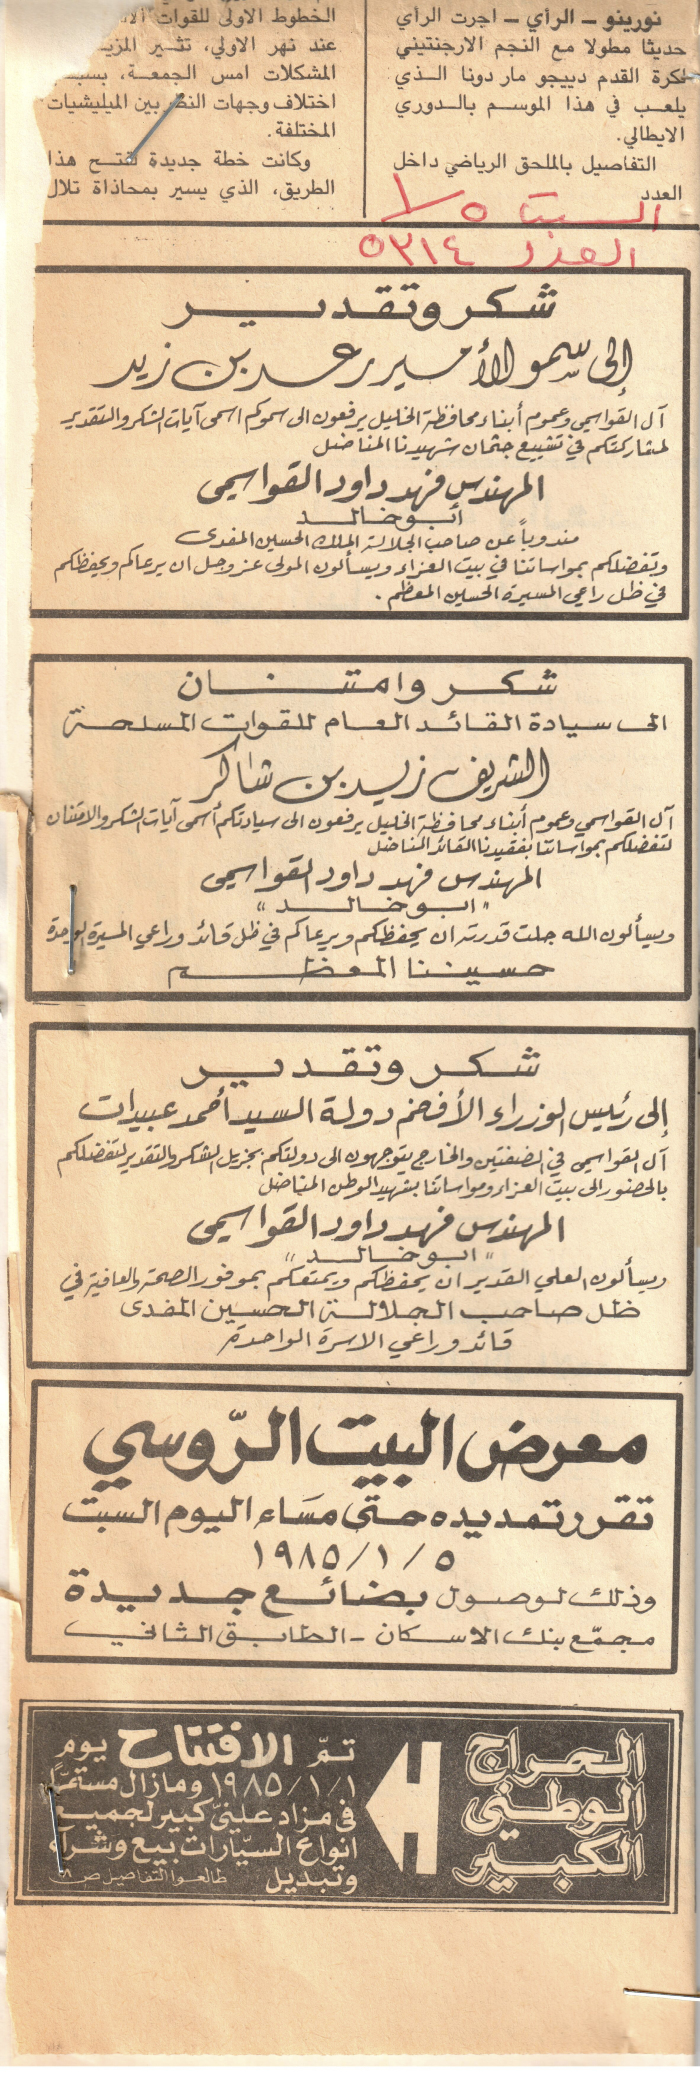 تورينو – الرأي – اجرت الرأي
حديثا مطولا مع النجم الارجنتيني
لكرة القدم دييجو مار دونا الـذي
يلعـب في هذا الموسـم بالـدوري
الايطالي.
التفاصيل بالملحق الرياضي داخل
العدد
الخطوط الاولى للقوات
عند نهر الاولي، تثـير المزيد
المشكلات امس الجمعـة، بسبب
اختلاف وجهات النظر بين الميليشيات
المختلفة.
وكانت خطة جديدة لفتـح هذا
الطريق، الذي يسير بمحاذاة تلال
السبت ٥/١
العدد ٥٣١٤
شكر وتقديـر
إلى سمو الأمير رعد بن زيد
آل القواسمي وعموم أبناء محافظة الخليل يرفعون الى سموكم اسمى آيات الشكر والتقدير
لمشاركتكم في تشييع جثمان شهيدنا المناضل
المهندس فهد داود القواسمي
أبو خالد
مندوباً عن صاحب الجلالة الملك الحسين المفدى
وتفضلكم بمواساتنا في بيت العزاء ويسألون المولى عز وجل ان يرعاكم ويحفظكم
في ظل راعي المسيرة الحسين المعظم .
شكر وامتنان
الى سيادة القائد العام للقوات المسلحة
الشريف زيد بن شاكر
آل القواسمي وعموم أبناء محافظة الخليل يرفعون الى سيادتكم أسمى آيات الشكر والامتنان
لتفضلكم بمواساتنا بفقيدنا القائد المناضل
المهندس فهد داود القواسمي
"ابو خالد"
ويسألون الله جلت قدرته ان يحفظكم ويرعاكم في ظل قائد وراعي المسيرة الواحدة
حسيننا المعظم
شكر وتقدير
إلى رئيس الوزراء الأفخم دولة السيد أحمد عبيدات
آل القواسمي في الضفتين والخارج يتوجهون الى دولتكم بجزيل الشكر والتقدير لتفضلكم
بالحضور الى بيت العزاء ومواساتنا بشهيد الوطن المناضل
المهندس فهد داود القواسمي
"ابو خالد"
ويسألون العلي القدير ان يحفظكم ويمتعكم بموفور الصحة والعافية في
ظل صاحب الجلالة الحسين المفدى
قائد وراعي الاسرة الواحدة
معرض البيت الرّوسي
تقرر تمديده حتى مسَاء اليوم السبت
١٩٨٥/١/٥
وذلك لوصول بضائع جديدة
مجمّع بنك الاسكان - الطابق الثاني
الحراج
الوطني
الكبير
تمّ الافتتاح يوم
١٩٨٥/١/١ ومازال مستمرّا
في مزاد علنيّ كبير لجميع
انواع السيّارات بيع وشراء
وتبديل طالعوا التفاصيل ص ١٨